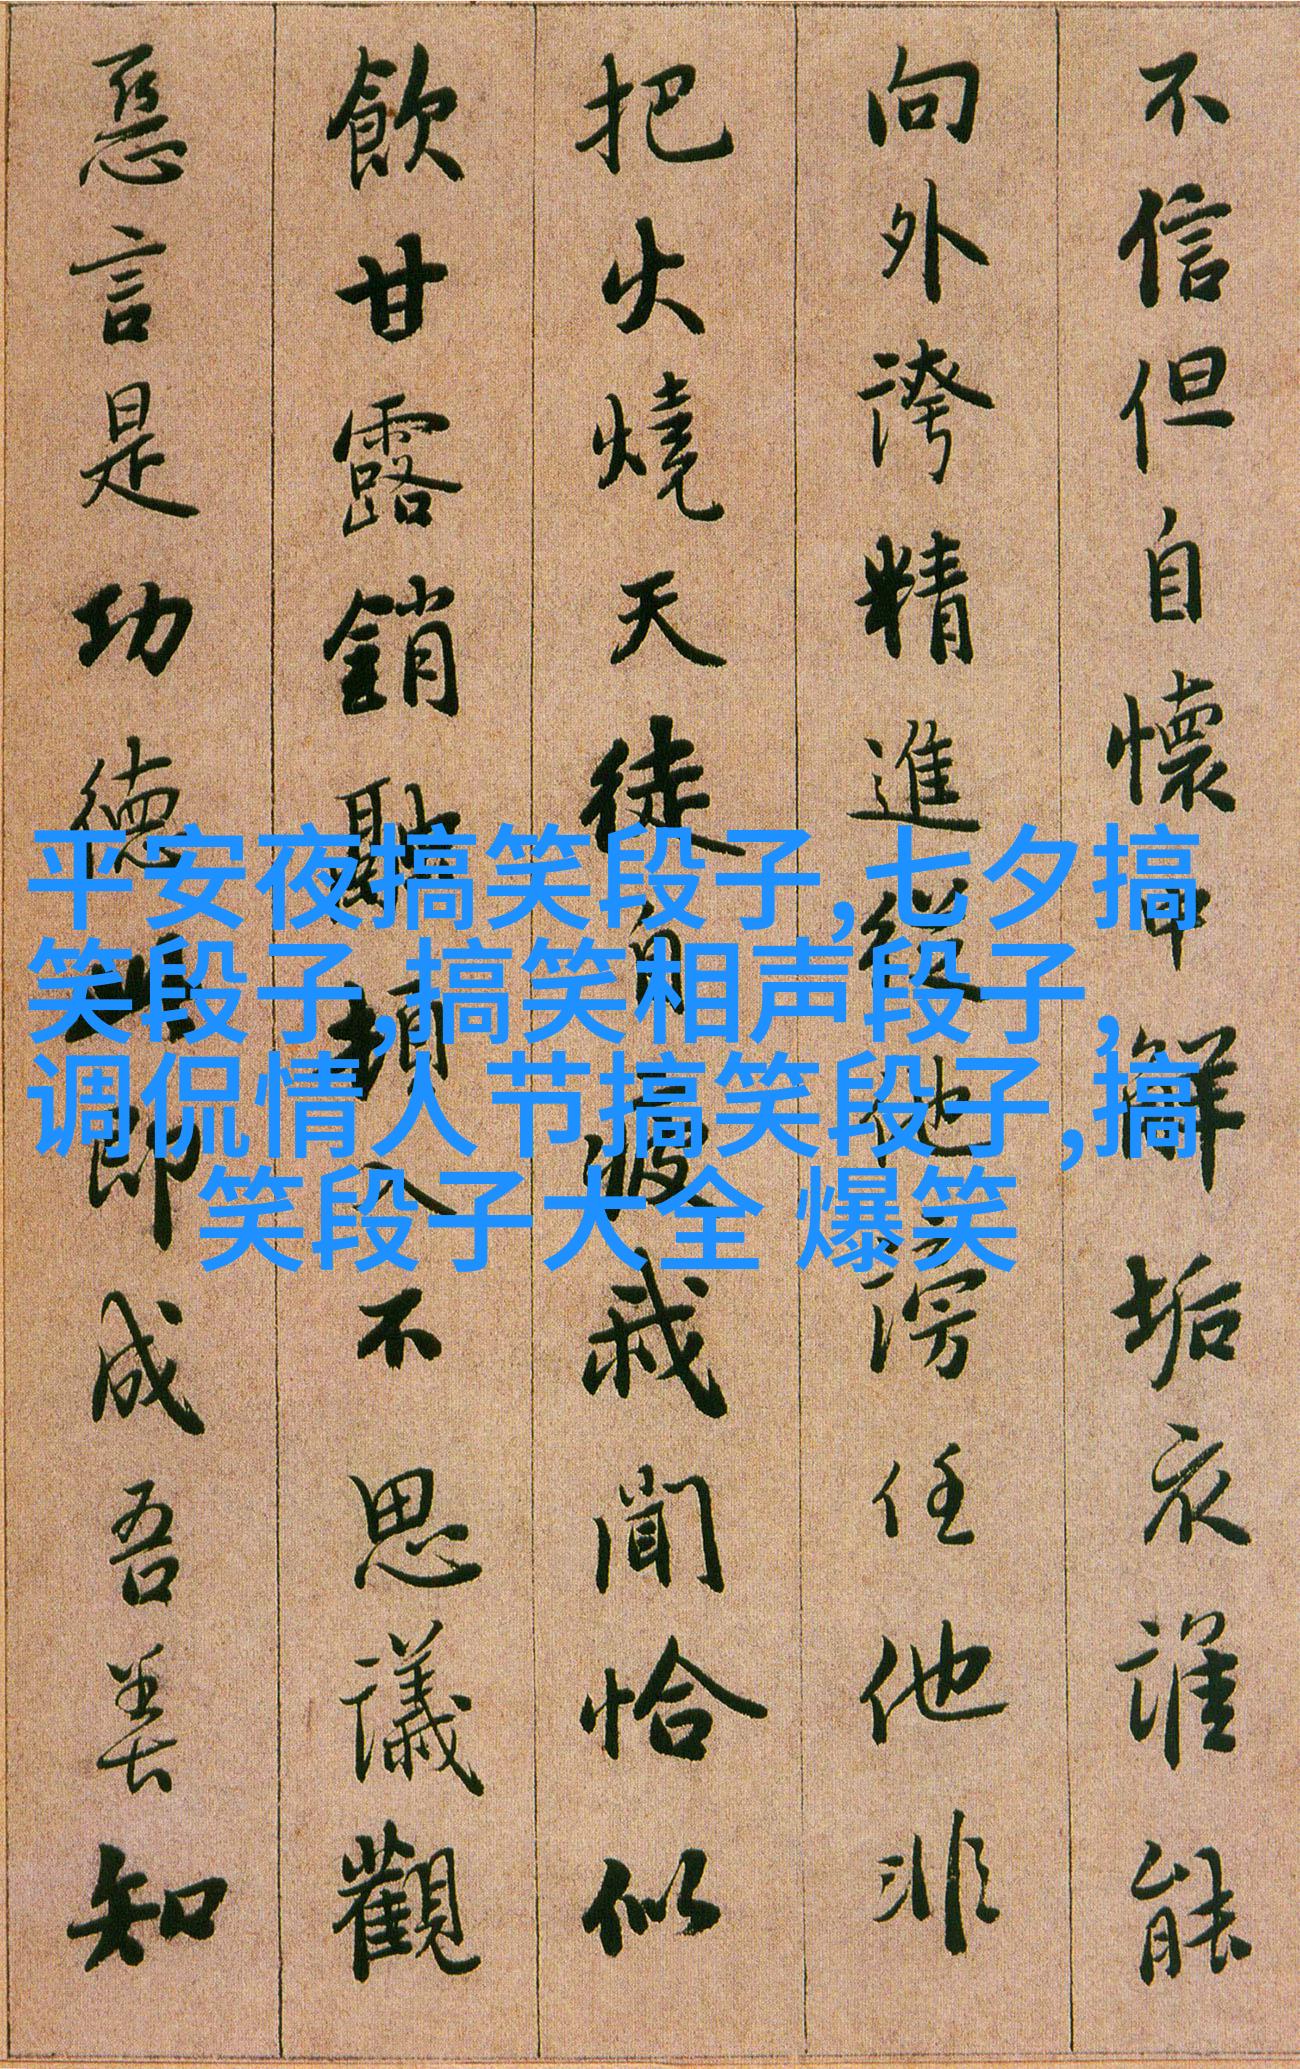 不信但自懷中解垢衣誰能
向外誇精進從他謗任他非
把火燒天徒自疲我聞恰似
飲甘露銷融頓入不思議觀
惡言是功德此即成吾善知
平安夜搞笑段子,七夕搞
笑段子,搞笑相声段子,
调侃情人节搞笑段子,搞
笑段子大全 爆笑